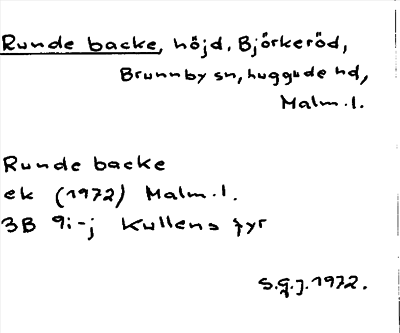 Runde backe, höjd. Björkeröd,
Brunnby sn, huggude hd,
Malm.l.
Runde backe
ek (1972) Malm.l.
3B 9i-j Kullens fyr
S.g.j. 1972.